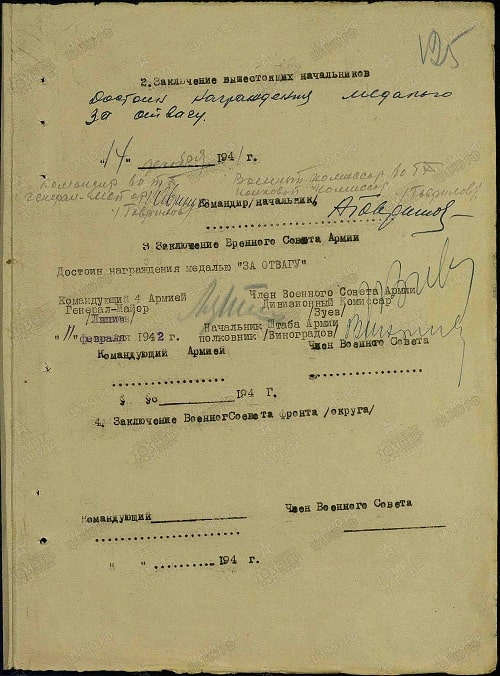 125
2. Заключение вышестоящих начальников
Достоин награждения медалью
За отвагу.
"14" ноября 1941 г.
Командир
Генерал-майор
Военный комиссар
Полковой Комиссар
/Гаврилов/
Командир/начальник/
3 Заключение Военного Совета Армии
Достоин награждения медалью "ЗА ОТВАГУ"
Командующий 4 Армией
Генерал-Майор
/Ляпин/
Член Военного Совета Армии
Дивизионный Комиссар
/Зуев/
"11" февраля 1942 г.
Начальник Штаба Армии
полковник /Виноградов/
Командующий Армией
Член Военного Совета
194 Г.
4. Заключение ВоенногСоевета фронта /округа/
Командующий
Член Военного Совета
" " .......... 194 г.